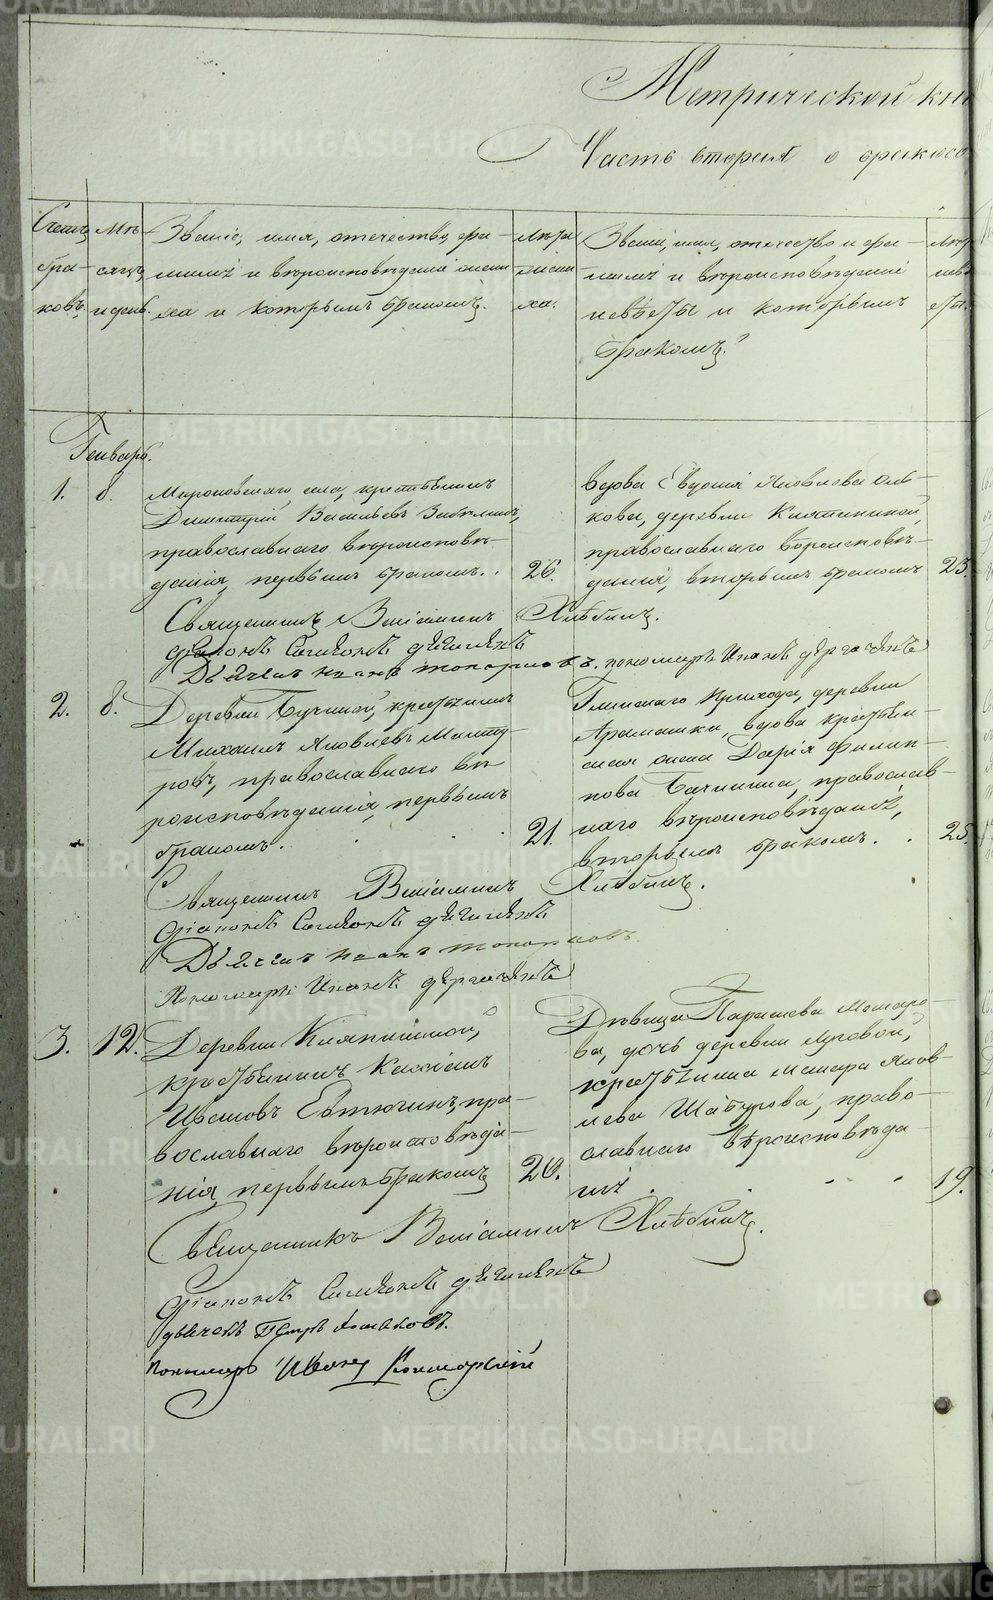 Метрической кни
Часть вторая о бракосо
Счетъ
бра-
ковъ.
Мѣ-
сяцъ
и день.
Званіе, имя, отечество, фа-
милія и вѣроисповѣданіе жени-
ха и которымъ бракомъ.
Лѣта
жени
ха.
Званіе, имя, отечество и фа-
милія и вѣроисповѣданіе
невѣсты и которымъ
бракомъ.
Лѣт
невѣ
сты.
Генварь.
1. 8.
Мироновскаго села, крестьянинъ
Димитрій Васильевъ
православнаго вѣроисповѣ-
данія, первымъ бракомъ. 26.
вдова Евдокія Яковлева
кова, деревни
православнаго вѣроисповѣ-
данія, вторымъ бракомъ 23.
Священникъ Веніаминъ Хлѣбинъ.
Діаконъ Симеонъ Дягилевъ
Дьячекъ Иванъ Топорковъ. пономарь Иванъ Дергачевъ
2. 8.
Деревни Бучиной, крестьянинъ
Михаилъ Яковлевъ Манту-
ровъ, православнаго вѣ-
роисповѣданія, первымъ
бракомъ. 21.
Глинскаго прихода, деревни
Арамашки, вдова крестьян-
ская жена Дарія Филип-
пова Бачинина, православ-
наго вѣроисповѣданія,
вторымъ бракомъ. 25.
Священникъ Веніаминъ Хлѣбинъ.
Діаконъ Симеонъ Дягилевъ
Дьячекъ Иванъ Топорковъ.
Пономарь Иванъ Дергачевъ
3. 12.
Деревни
крестьянинъ Кассіанъ
Ивановъ Евтюгинъ, пра-
вославнаго вѣроисповѣда-
нія, первымъ бракомъ 20.
Дѣвица Параскева Макаро-
ва, дочь деревни Луговой,
крестьянина Макара Яков-
лева Шабурова, право-
славнаго вѣроисповѣда-
нія. 19.
Священникъ Веніаминъ Хлѣбинъ.
Діаконъ Симеонъ Дягилевъ
дьячекъ Петръ
пономарь Иванъ
METRIKI.GASO-URAL.RU